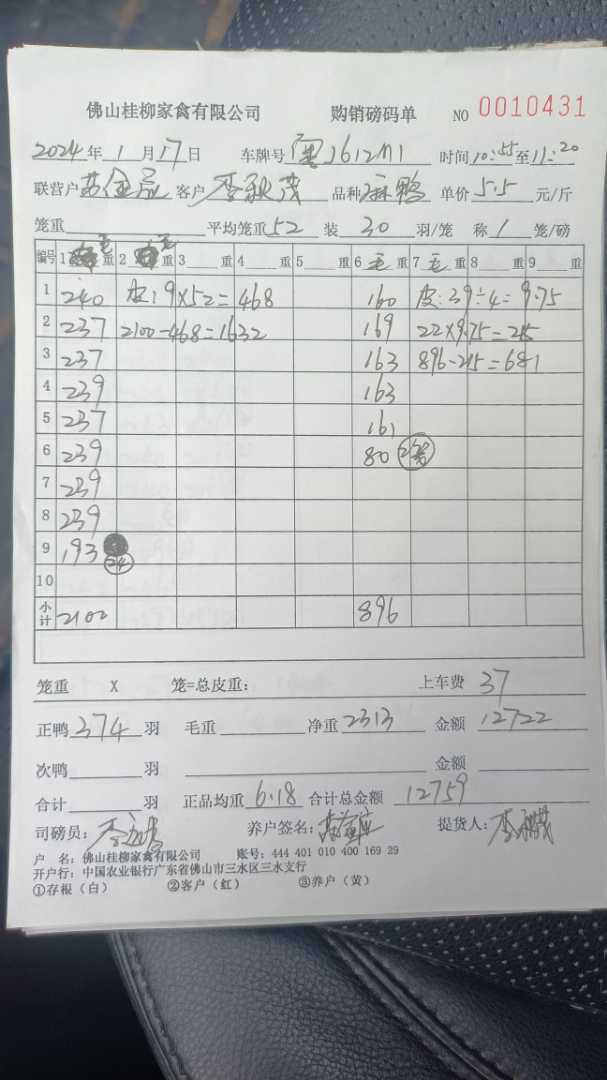 佛山桂柳家禽有限公司 购销磅码单 NO 0010431
2024年1月17日 车牌号 粤J612M1 时间10:55至11:20
联营户 客户 李秋茂 品种 麻鸭 单价5.5元/斤
笼重 平均笼重52 装30羽/笼 称1笼/磅
编号 1 毛重 2 毛重 3 重 4 重 5 重 6 毛重 7 毛重 8 重 9 重
1 240 皮:9×52=468 160 皮:39÷4=9.75
2 237 2100-468=1632 169 22×9.75=215
3 237 163 896-215=681
4 239 163
5 237 161
6 239 80
7 239
8 239
9 193 24
10
小计 2100 896
笼重 X 笼=总皮重: 上车费 37
正鸭374羽 毛重 净重2313 金额12722
次鸭 羽 金额
合计 羽 正品均重6.18 合计总金额 12759
司磅员: 养户签名: 提货人:李秋茂
户 名:佛山桂柳家禽有限公司 账号:444 401 010 400 169 29
开户行:中国农业银行广东省佛山市三水区三水支行
①存根(白) ②客户(红) ③养户(黄)